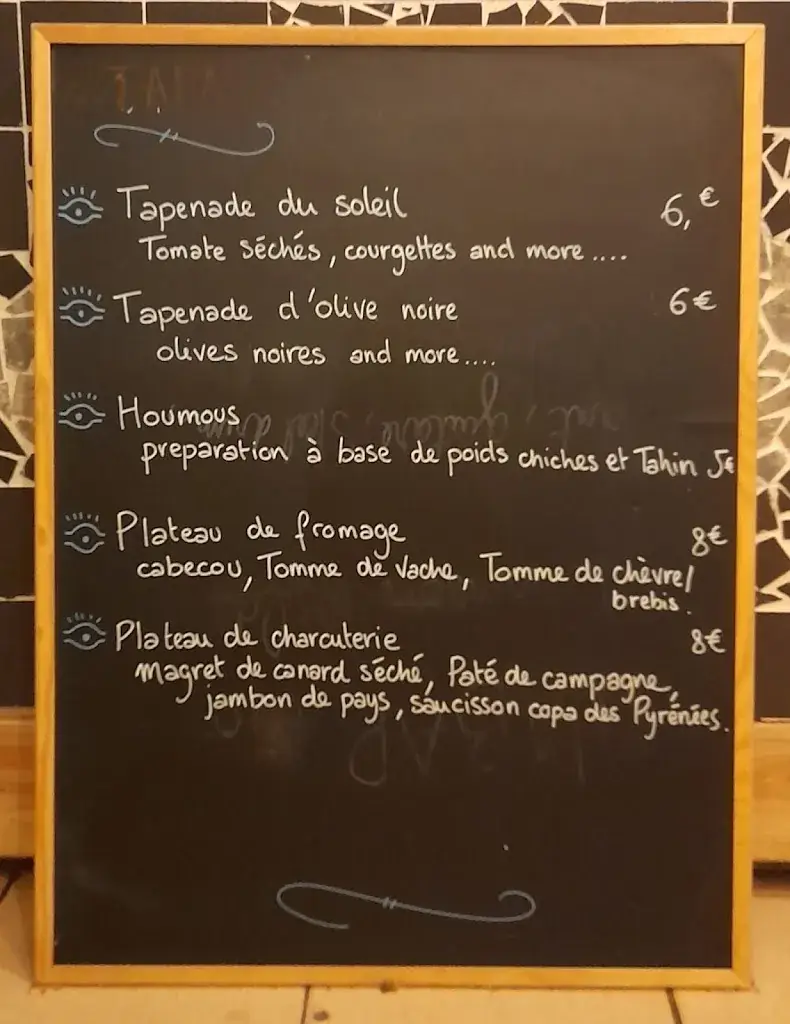 Tapenade du soleil 6,€
Tomate séchés, courgettes and more ....
Tapenade d'olive noire 6€
olives noires and more ....
Houmous
preparation à base de poids chiches et Tahin 5€
Plateau de fromage 8€
cabecou, Tomme de vache, Tomme de chèvre/
brebis.
Plateau de charcuterie 8€
magret de canard séché, Paté de campagne,
jambon de pays, saucisson copa des Pyrénées.